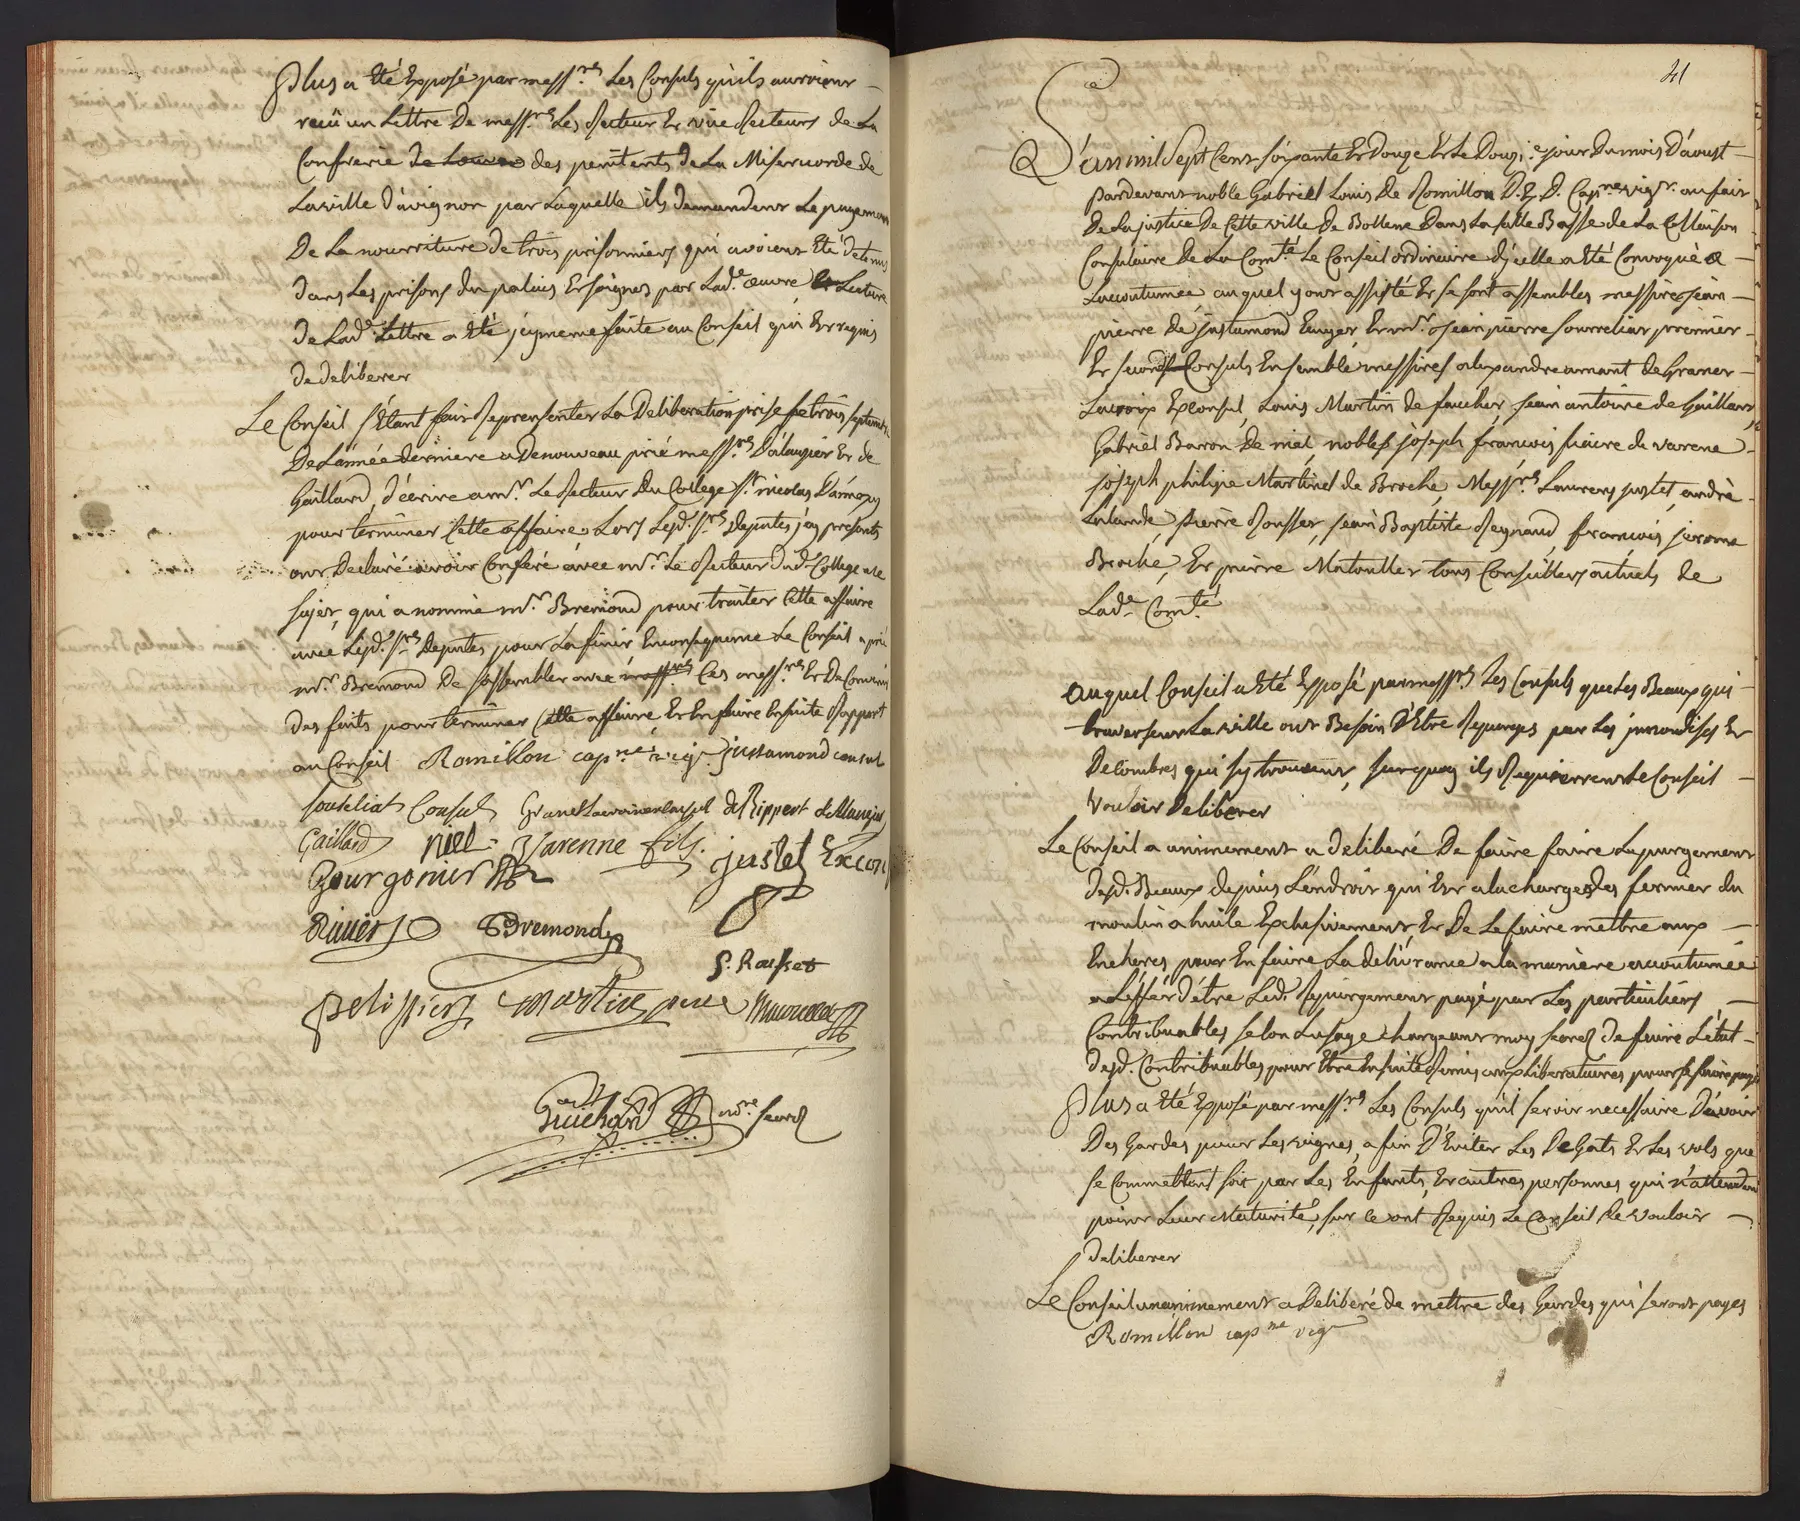 Plus a Eté Exposé par mess.rs Les Consuls qu'ils auroient
reçû un Lettre De mess.rs Les Recteur Et vice Recteurs de La
Confrerie des penitents De La Misericorde de
La ville d'avignon par Laquelle ils demandent Le payement
De La nourriture de trois prisonniers qui avoient Eté detenus
Dans Les prisons du palais Et soignés par Lad.e œuvre Lecture
De Lad.e Lettre a Eté faite au Conseil qui Est requis
De deliberer
Le Conseil s'Etant fait Representer La Deliberation prise le trois septembre
De L'année derniere a De nouveau prié mess.rs D'alauzier Et de
Gaillard, d'écrire a m.r Le Recteur Du College S.t nicolas D'annecy
pour terminer Cette affaire Lors Lesd. s.rs Deputés icy presents
ont Declaré avoir Conferé avec m.r Le Recteur Dud. College a ce
sujet, qui a nommé m.r Bremond pour traiter Cette affaire
avec Lesd. s.rs Deputés pour La finir En consequence Le Conseil a prié
m.r Bremond De s'assembler avec Ces mess.rs Et De Convenir
Des faits pour terminer Cette affaire Et En faire Ensuite Rapport
au Conseil Romillon cap.ne vig.r justamond consul
Soureliat Consul de Rippert
Gaillard niel Varenne fils. justet Excon
Bourgonet
Rivier Bremond
P. Rousset
pelissier Martin
Guichard no.re secre
41
L'an mil Sept Cent soixante Et Douze Et Le Douz.e jour Du mois D'aoust
Pardevant noble Gabriel Louis De Romillon D. E. D. Cap.ne vig.r au fait
De La justice De Cette ville De Bollene Dans La salle Basse de La Maison
Consulaire De La Com.té Le Conseil ordinaire d'jcelle a Eté Convoqué a
La coutumée auquel y ont assisté Et se sont assemblés messires jean
pierre De justamond Et m.r jean pierre Sourreliat premier
Et second Consuls Ensemble messires alexandre amant de Granet
Lacroix Exconsul, Louis Martin de faucher jean antoine de Gaillard,
Gabriel Baron De niel, nobles joseph francois de varene
joseph philipe Martinel de Broche, Mess.rs Laurens justet, andré
Lalande pierre Rousset, jean Baptiste Reynaud francois jerome
Broché, Et pierre tous Conseillers actuels de
Lad.e Com.té
auquel Conseil a Eté Exposé par mess.rs Les Consuls que Les Beaux qui
traversent La ville ont Besoin D'Etre Repurgés par Les jmmondises Et
Decombres qui s'y trouvent, sur quoy ils Requierrent Le Conseil
vouloir Deliberer
Le Conseil a unimement a deliberé De faire faire Le purgement
Desd. Beaux depuis L'endroit qui Est a la charge des fermier du
moulin a huile Exclusivement Et De Le faire mettre aux
Encheres pour En faire La délivrance a la maniere accoutumée
a L'effet d'être Led. Repurgement payé par Les particuliers
Contribuables selon L'usage chargeant moy secre de faire L'état
Desd. Contribuables pour Etre Ensuite Remis aux Liberataires pour se faire payé
Plus a Eté Exposé par mess.rs Les Consuls qu'il seroit necessaire D'avoir
Des Gardes pour Les vignes, afin D'Eviter Les DeGats Et Les vols que
se Commettent soit par Les Enfants, Et autres personnes qui n'attendent
point Leur Maturité, sur ce ont Requis Le Conseil De vouloir
deliberer
Le Conseil unanimement a Deliberé de mettre des Gardes qui seront payés
Romillon cap.ne vig.r